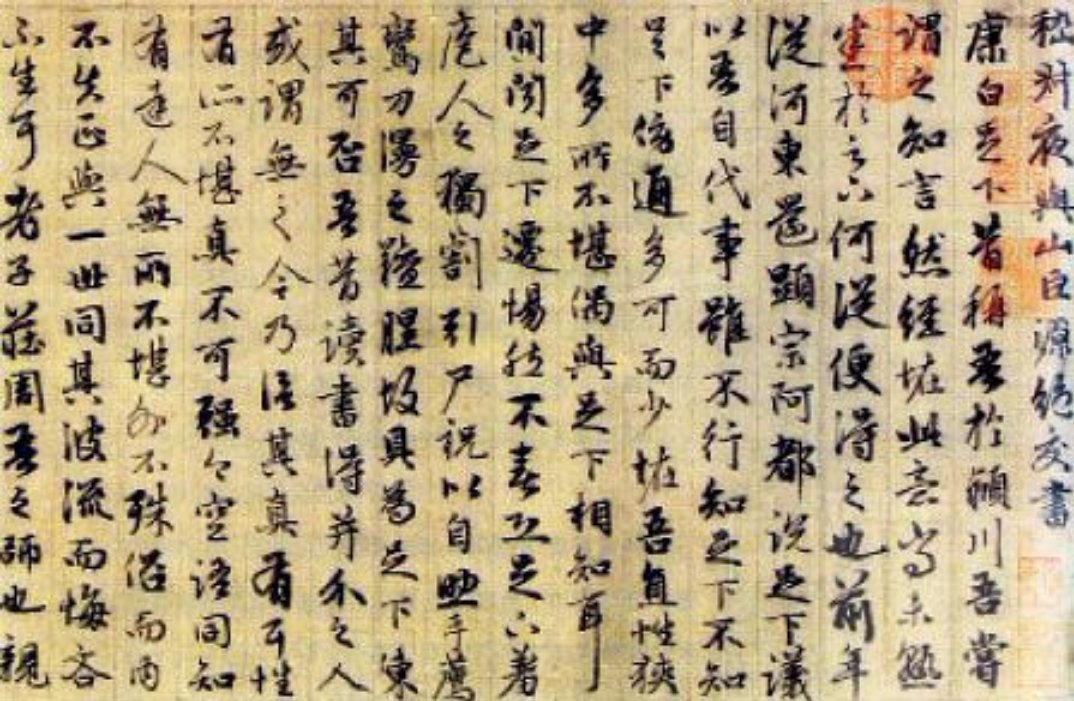 嵇叔夜與山巨源絕交書
康白足下昔稱吾於潁川吾嘗
謂之知言然經怪此意尚未熟
於足下何從便得之也前年
從河東還顯宗阿都說足下議
以吾自代事雖不行知足下不知
足下傍通多可而少怪吾直性狹
中多所不堪偶與足下相知耳
間聞足下遷惕然不喜恐足下羞
庖人之獨割引尸祝以自助手薦
鸞刀漫之羶腥故具為足下陳
其可否吾昔讀書得并介之人
或謂無之今乃信其真有耳性
有所不堪真不可強今空語同知
有達人無所不堪外不殊俗而內
不失正與一世同其波流而悔吝
不生耳老子莊周吾之師也親